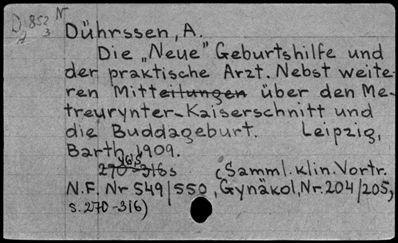 D 852 N
3
Dührssen, A.
Die „Neue" Geburtshilfe und
der praktische Arzt. Nebst weite-
ren Mitteilungen über den Me-
treurynter-Kaiserschnitt und
die Buddageburt. Leipzig,
Barth, 1909.
270-316 s (Samml. klin. Vortr.
N.F. Nr 549/550, Gynäkol, Nr. 204/205,
s. 270-316)